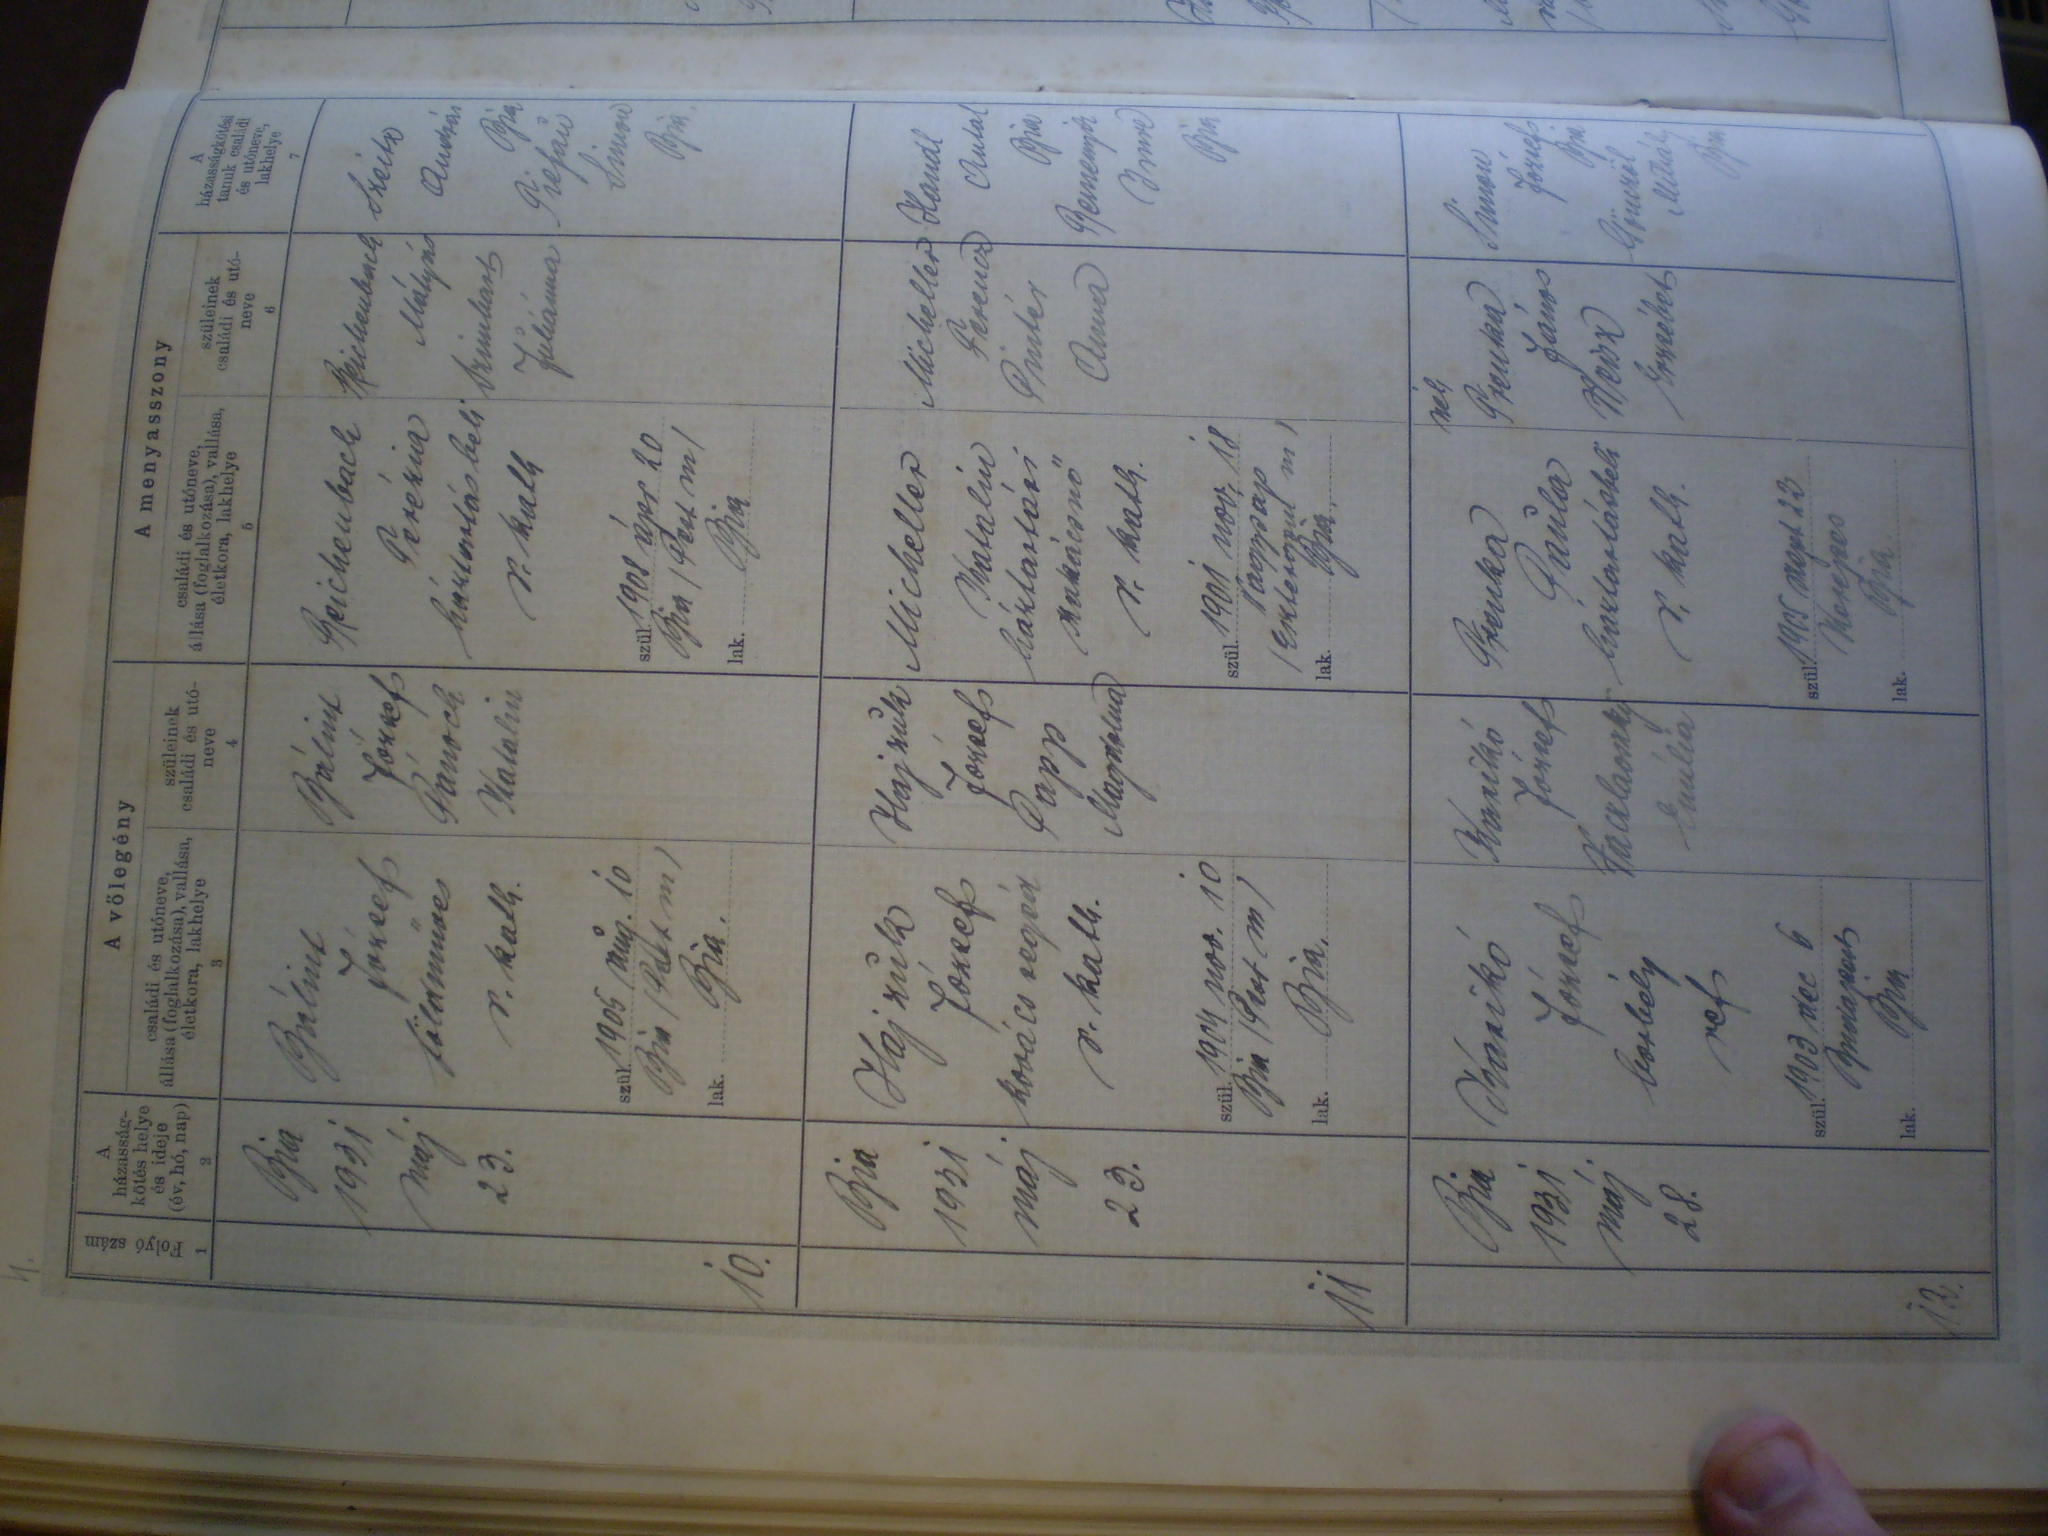 4.
Folyó szám
1
A
házasság-
kötés helye
és ideje
(év, hó, nap)
2
A vőlegény
családi és utóneve,
állása (foglalkozása), vallása,
életkora, lakhelye
3
szüleinek
családi és utó-
neve
4
A menyasszony
családi és utóneve,
állása (foglalkozása), vallása,
életkora, lakhelye
5
szüleinek
családi és utó-
neve
6
A
házasságkötési
tanuk családi
és utóneve,
lakhelye
7
10.
Bia
1931
máj
23.
Bálint
József
földműves
r. kath.
szül. 1905 aug. 10
Bia (Pest m)
lak. Bia.
Bálint
József
Katalin
Reichenbach
Terézia
háztartásbeli
r. kath
szül. 1908 ápr 20
Bia (Pest m)
lak. Bia
Reichenbach
Mátyás
Julianna
Szeitz
András
Bia
Simon
Bia.
11
Bia
1931
máj
23.
Hajzuk
József
kovács segéd
r. kath.
szül. 1904 nov. 10
Bia (Pest m)
lak. Bia.
Hajzuk
József
Papp
Magdolna
Micheller
Katalin
háztartási
szakácsnő
r. kath.
szül. 1901 nov. 18
Nagydap
(Esztergom m)
lak. Bia.
Micheller
Ferencz
Pintér
Anna
Handl
Antal
Bia
Imre
Bia
12.
Bia
1931
máj
28.
József
borbély
ref
szül. 1903 dec 6
Budapest
lak. Bia
József
Paula
háztartásbeli
r. kath.
szül. 1905 szept 23
Kerepes
lak. Bia.
néh
János
Weisz
Erzsébet
Simon
József
Bia
Mihály
Bia